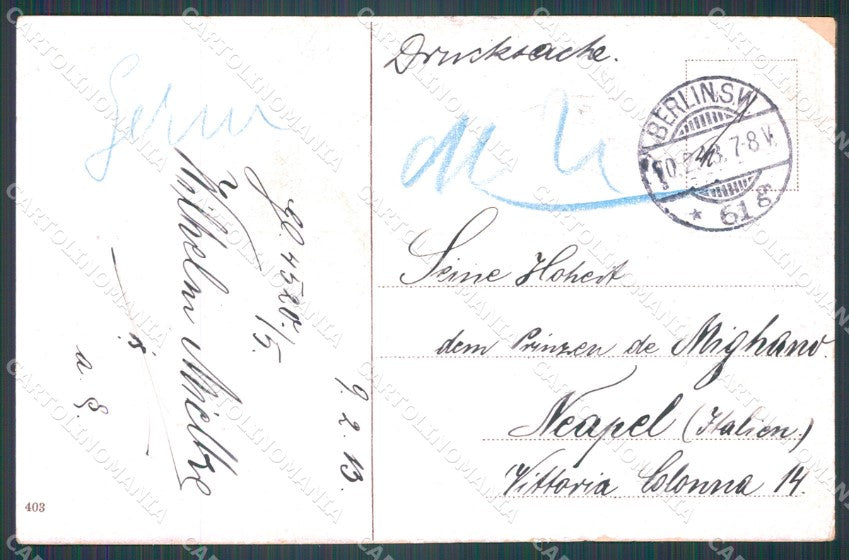 Drucksache.
BERLIN.S.W.
7-8 V.
* 61 g
Seine Hoheit
dem Prinzen de Mighano.
Neapel (Italien.)
Vittoria Colonna 14.
9. 2. 13.
Wilhelm Mielke
a. S.
403
CARTOLINOMANIA